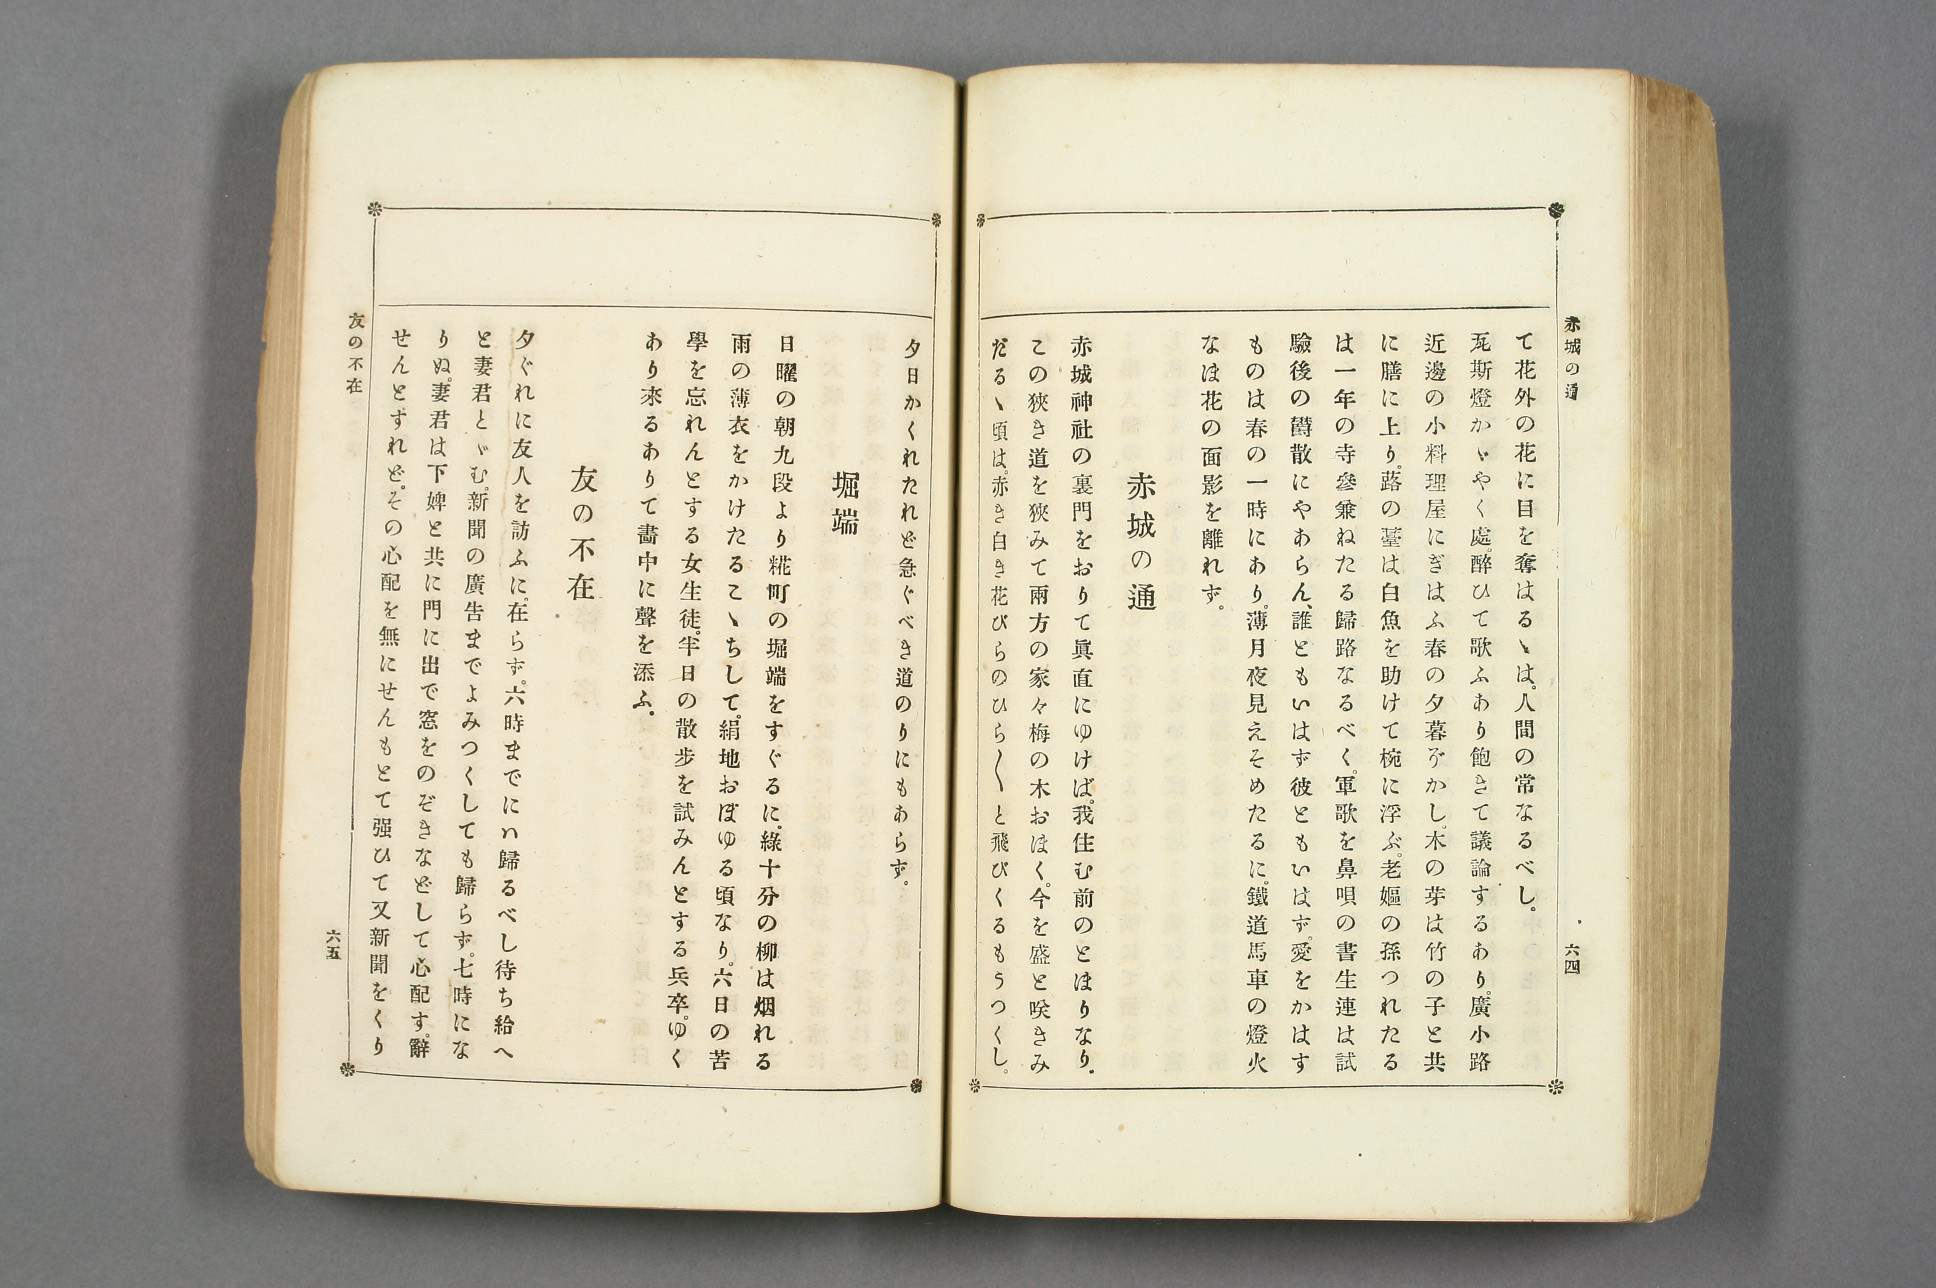 赤城の通
六四
て花外の花に目を奪はるゝは、人間の常なるべし。
瓦斯燈かゞやく處、醉ひて歌ふあり飽きて議論するあり。廣小路
近邊の小料理屋にぎはふ春の夕暮ぞかし。木の芽は竹の子と共
に膳に上り、蕗の薹は白魚を助けて椀に浮ぶ。老嫗の孫つれたる
は一年の寺參兼ねたる歸路なるべく、軍歌を鼻唄の書生連は試
驗後の欝散にやあらん、誰ともいはず彼ともいはず、愛をかはす
ものは春の一時にあり。薄月夜見えそめたるに、鐵道馬車の燈火
なほ花の面影を離れず。
赤城の通
赤城神社の裏門をおりて眞直にゆけば、我住む前のとほりなり。
この狹き道を狹みて兩方の家々梅の木おほく、今を盛と咲きみ
だるゝ頃は、赤き白き花びらのひら〳〵と飛びくるもうつくし。
夕日かくれたれど急ぐべき道のりにもあらず。
堀端
日曜の朝九段より糀町の堀端をすぐるに、綠十分の柳は烟れる
雨の薄衣をかけたるこゝちして、絹地おぼゆる頃なり。六日の苦
學を忘れんとする女生徒、半日の散步を試みんとする兵卒、ゆく
あり來るありて畵中に聲を添ふ。
友の不在
夕ぐれに友人を訪ふに、在らず。六時までにハ歸るべし待ち給へ
と妻君とゞむ。新聞の廣告までよみつくしても歸らず。七時にな
りぬ。妻君は下婢と共に門に出で窓をのぞきなどして心配す。辭
せんとすれど、その心配を無にせんもとて强ひて又新聞をくり
友の不在
六五